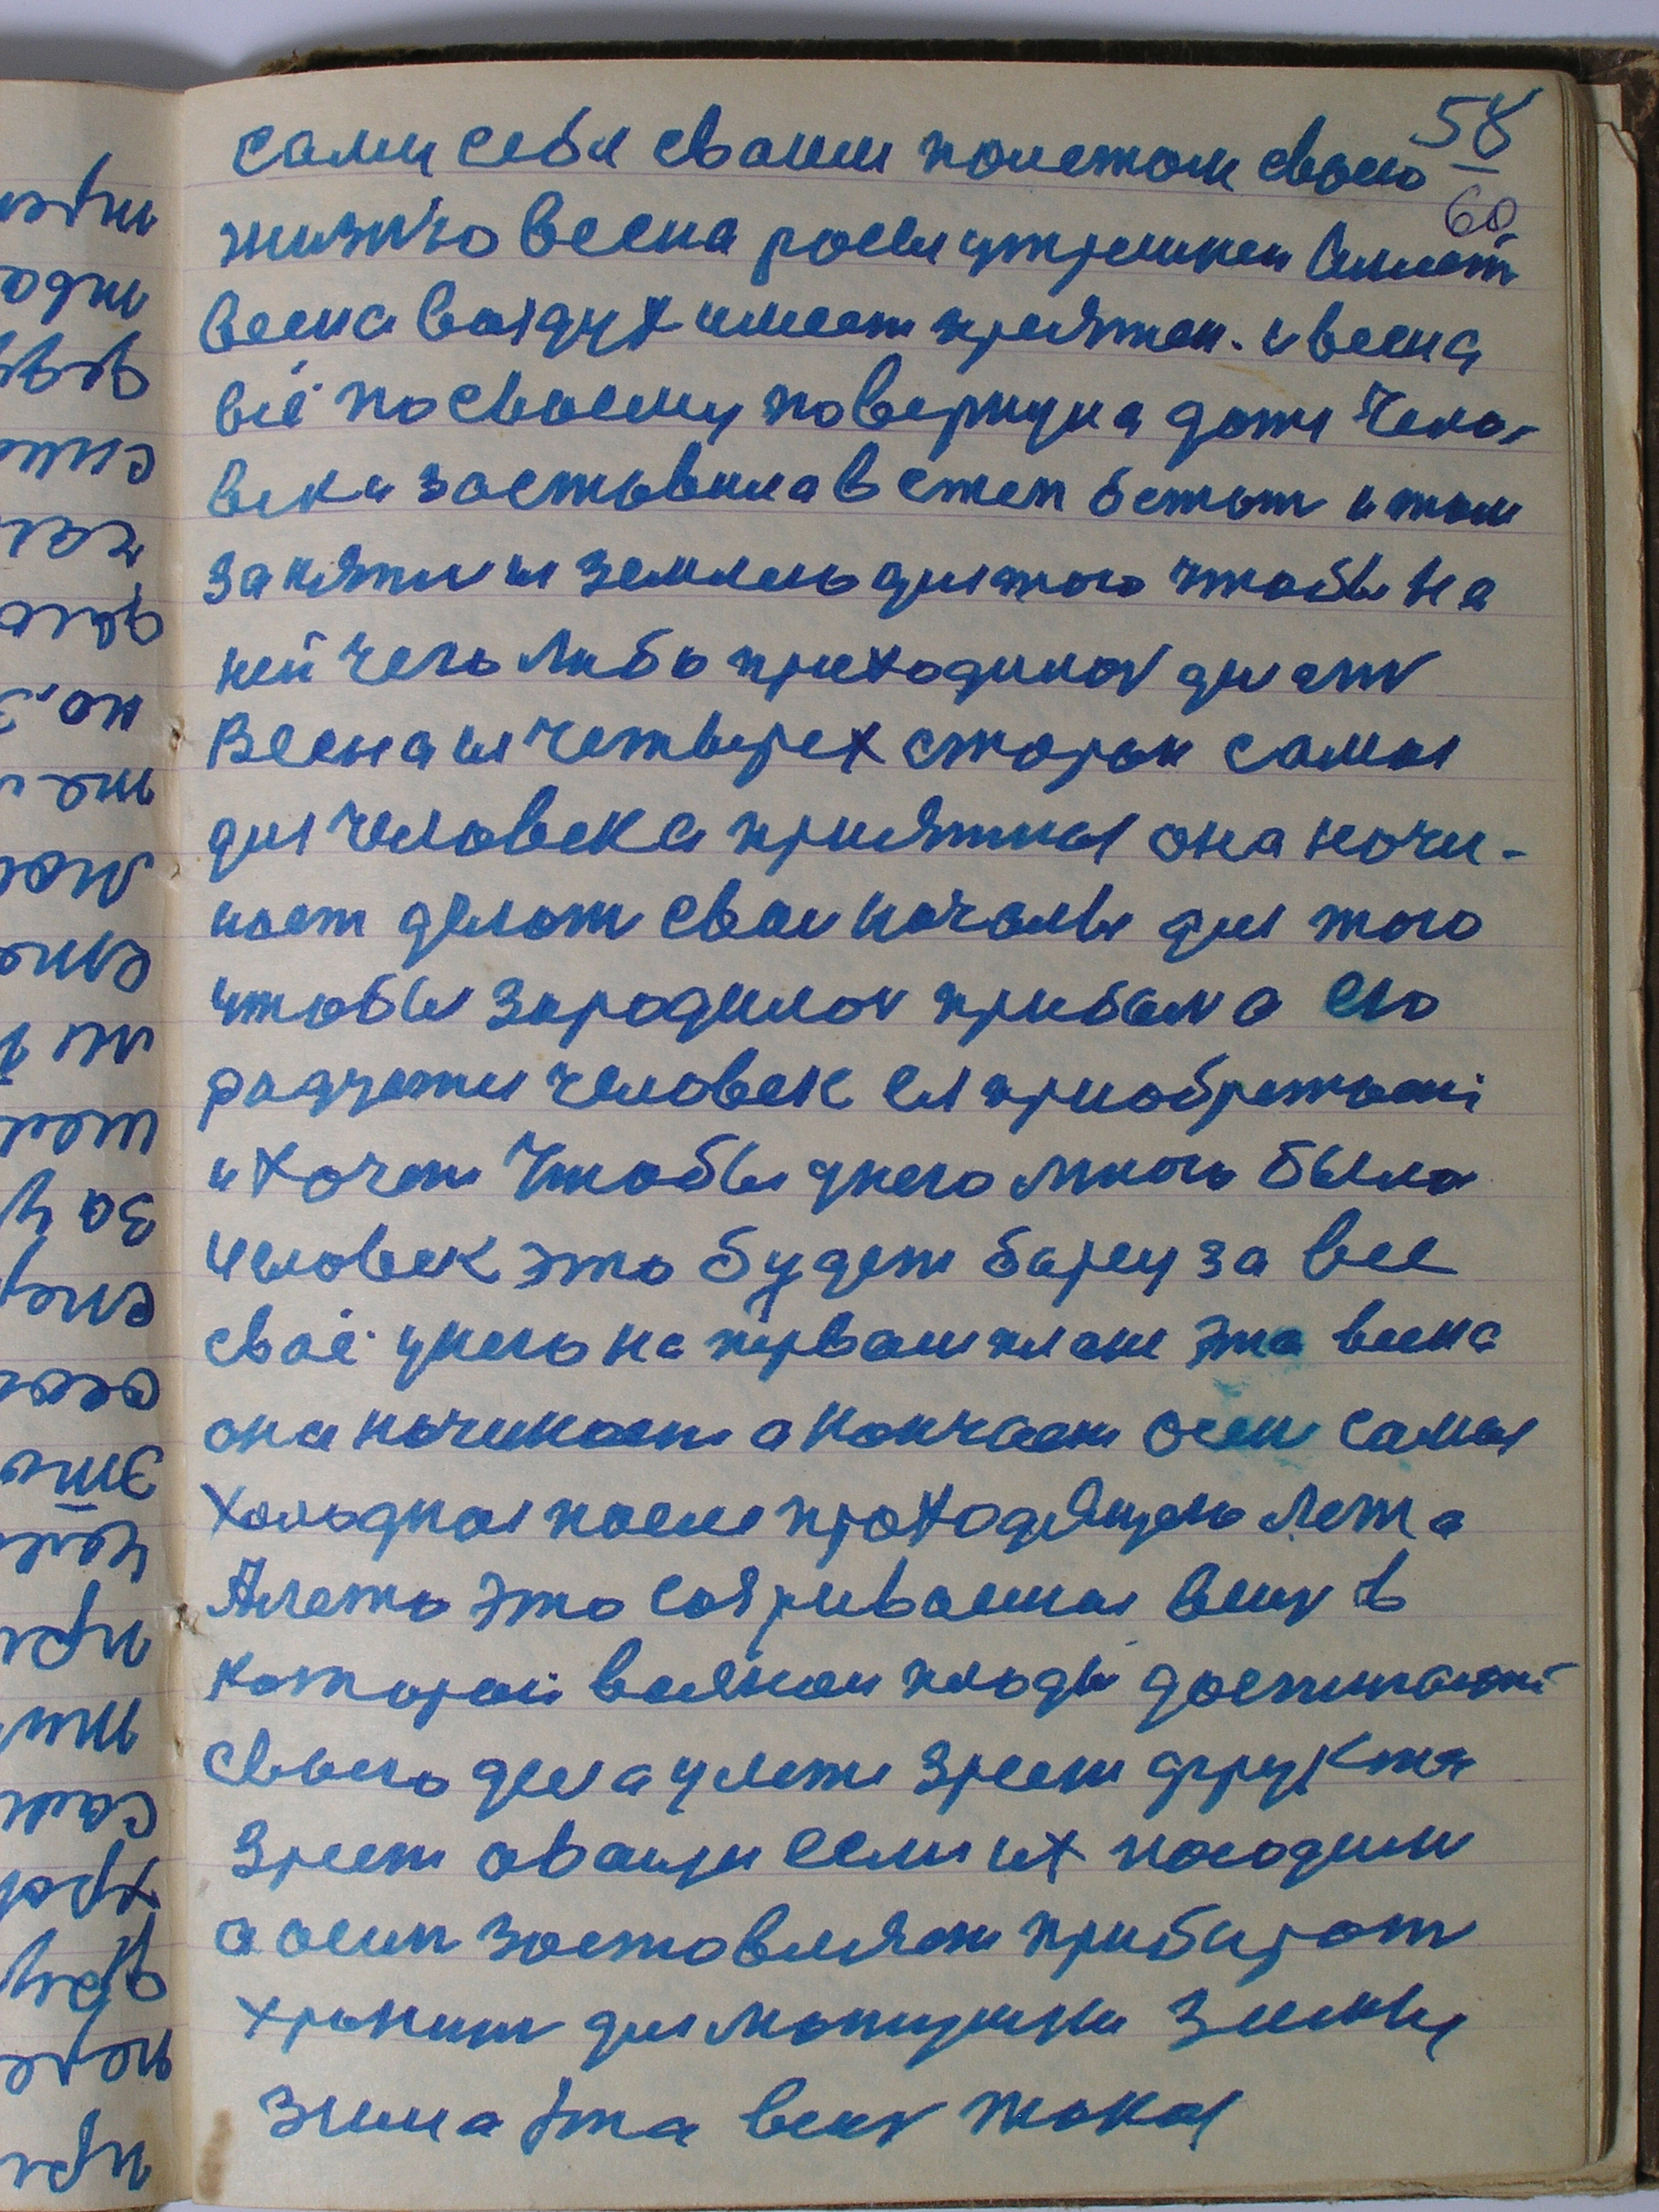 58
60
сами себя сваим полетом сваею
жизнью весна росы утренней имеет
весна воздух имеет приятен. и весна
всё по своему повернула даже чело-
века заставила в степ бетат и там
заняться землею для того чтобы на
ней чего либо приходилос делат
Весна из четырех сторон самая
для человека приятная она начи-
нает делат сваи началы для того
чтобы зародилос прибыл а его
радует человек ея приобретает
и хочет чтобы у него много было
человек это будет барец за все
сваё у него на первам плане эта весна
она начинает а кончает осен самая
холодная после проходящего лета
А лето это созриваемая вещ в
которай всякаи плоды достигают
своего дела у лети зреет фрукта
зреет аващи если их погодит
а осен заставляет прибират
хранит для матушки зимы
зима эта вещ такая